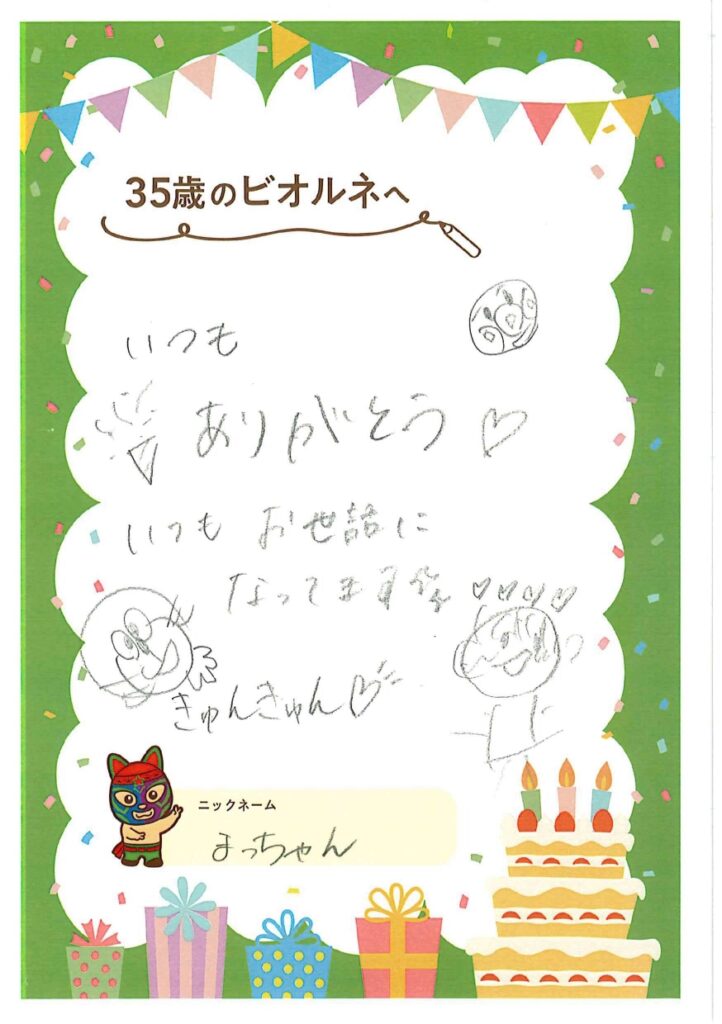 35歳のビオルネへ
いつも
ありがとう♡
いつも お世話に
なってます
きゅんきゅん♡
ニックネーム
まっちゃん